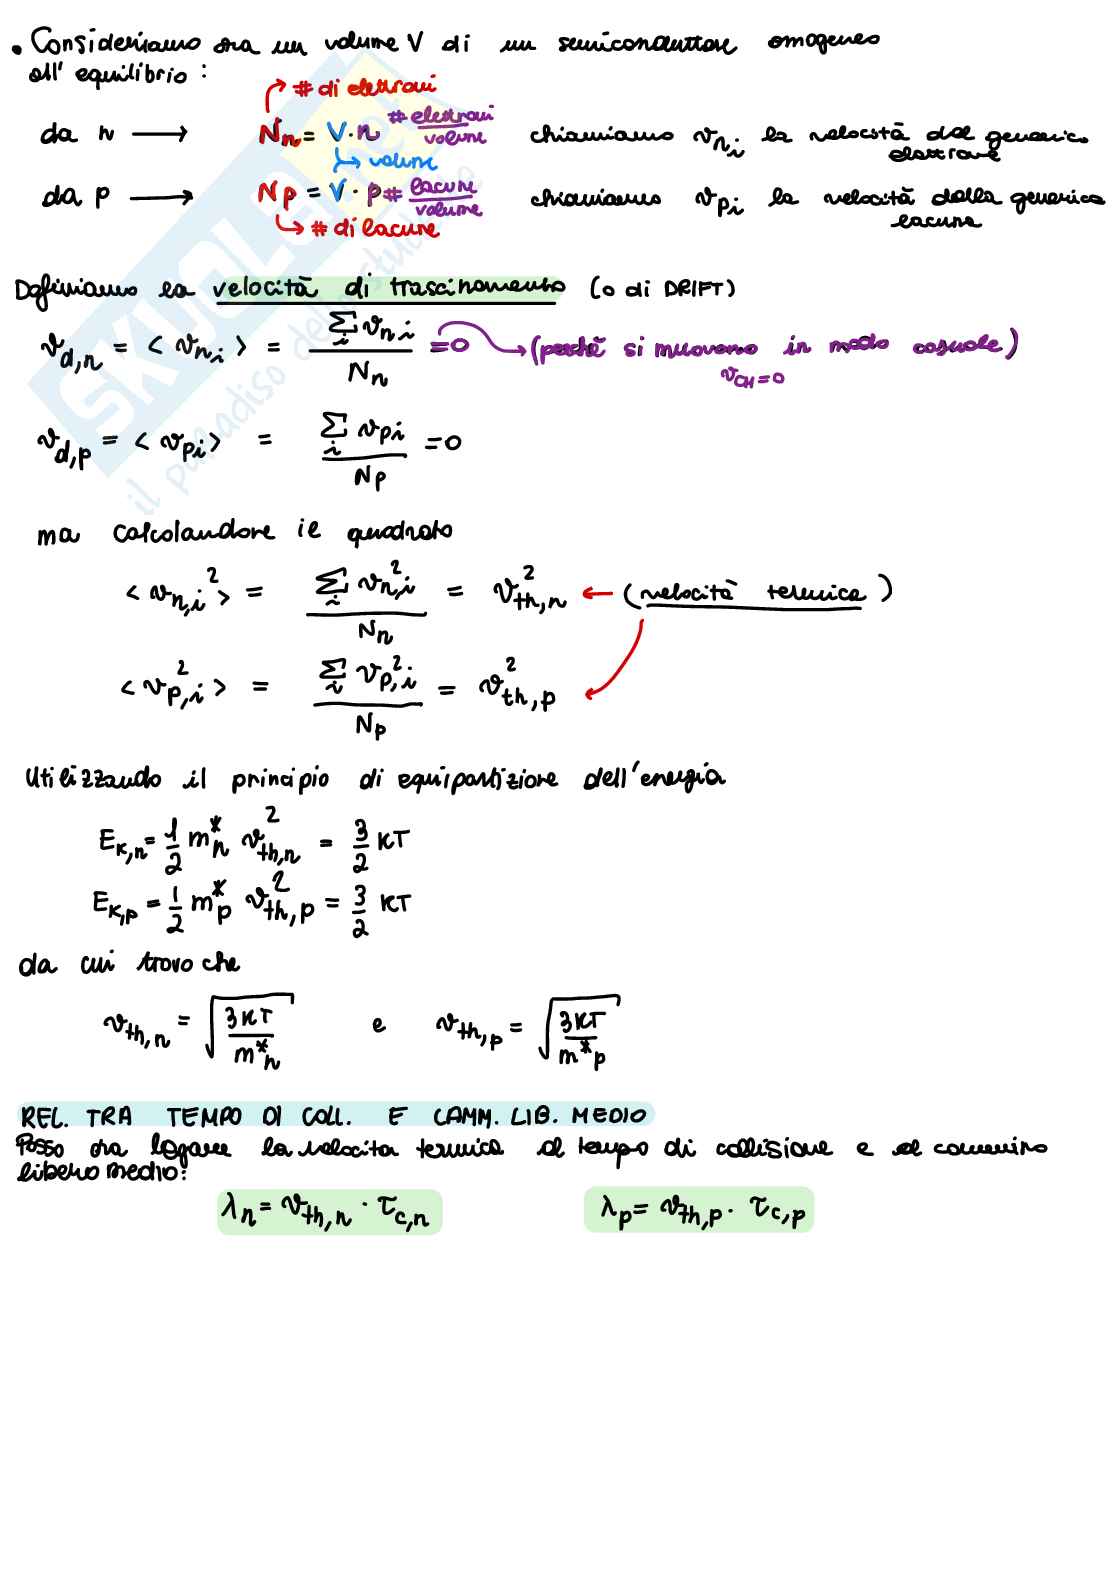 • Consideriamo ora un volume V di un semiconduttore omogeneo
all'equilibrio:
# di elettroni
da n → Nn = V · n # elettroni/volume chiamiamo v_ni la velocità del generico elettrone
volume
da p → Np = V · p # lacune/volume chiamiamo v_pi la velocità della generica lacuna
# di lacune
Definiamo la velocità di trascinamento (o di DRIFT)
v_d,n = < v_ni > = Σ_i v_ni / Nn = 0 → (perché si muovono in modo casuale)
v_CH = 0
v_d,p = < v_pi > = Σ_i v_pi / Np = 0
ma calcolandone il quadrato
< v_n,i² > = Σ_i v_n,i² / Nn = v_th,n² ← (velocità termica)
< v_p,i² > = Σ_i v_p,i² / Np = v_th,p²
Utilizzando il principio di equipartizione dell'energia
E_K,n = 1/2 m*_n v_th,n² = 3/2 KT
E_K,p = 1/2 m*_p v_th,p² = 3/2 KT
da cui trovo che
v_th,n = √(3KT / m*_n) e v_th,p = √(3KT / m*_p)
REL. TRA TEMPO DI COLL. E CAMM. LIB. MEDIO
Posso ora legare la velocita termica al tempo di collisione e al cammino
libero medio:
λ_n = v_th,n · τ_c,n λ_p = v_th,p · τ_c,p
SKUOLA.net
il paradiso dello studente